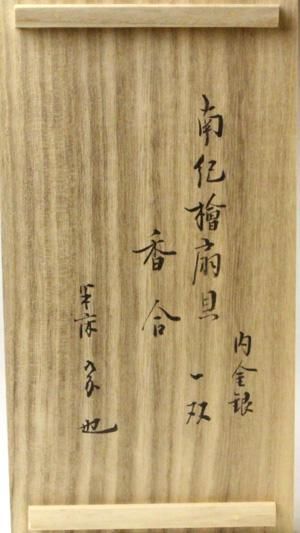 南紀檜扇貝 一双
内金銀
香合
半床 宗也